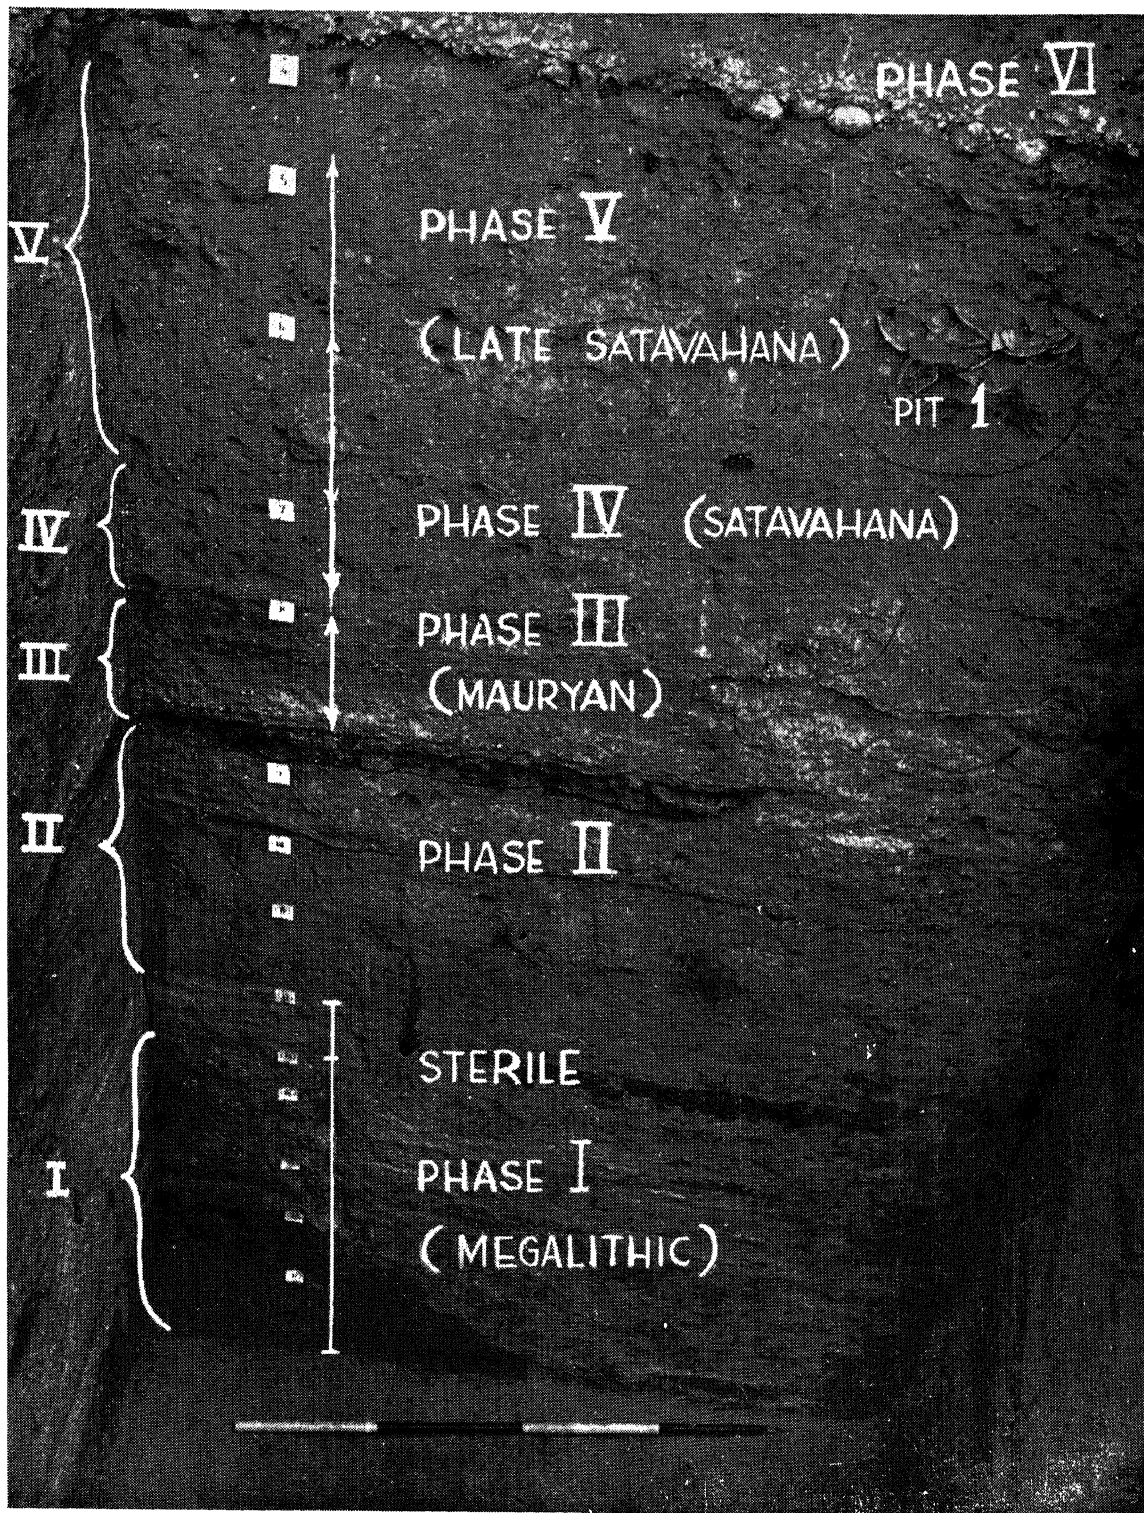 PHASE VI
4
5
V
PHASE V
6
(LATE SATAVAHANA)
PIT 1
7
IV
PHASE IV (SATAVAHANA)
8
PHASE III
III
(MAURYAN)
II
PHASE II
STERILE
I
PHASE I
(MEGALITHIC)